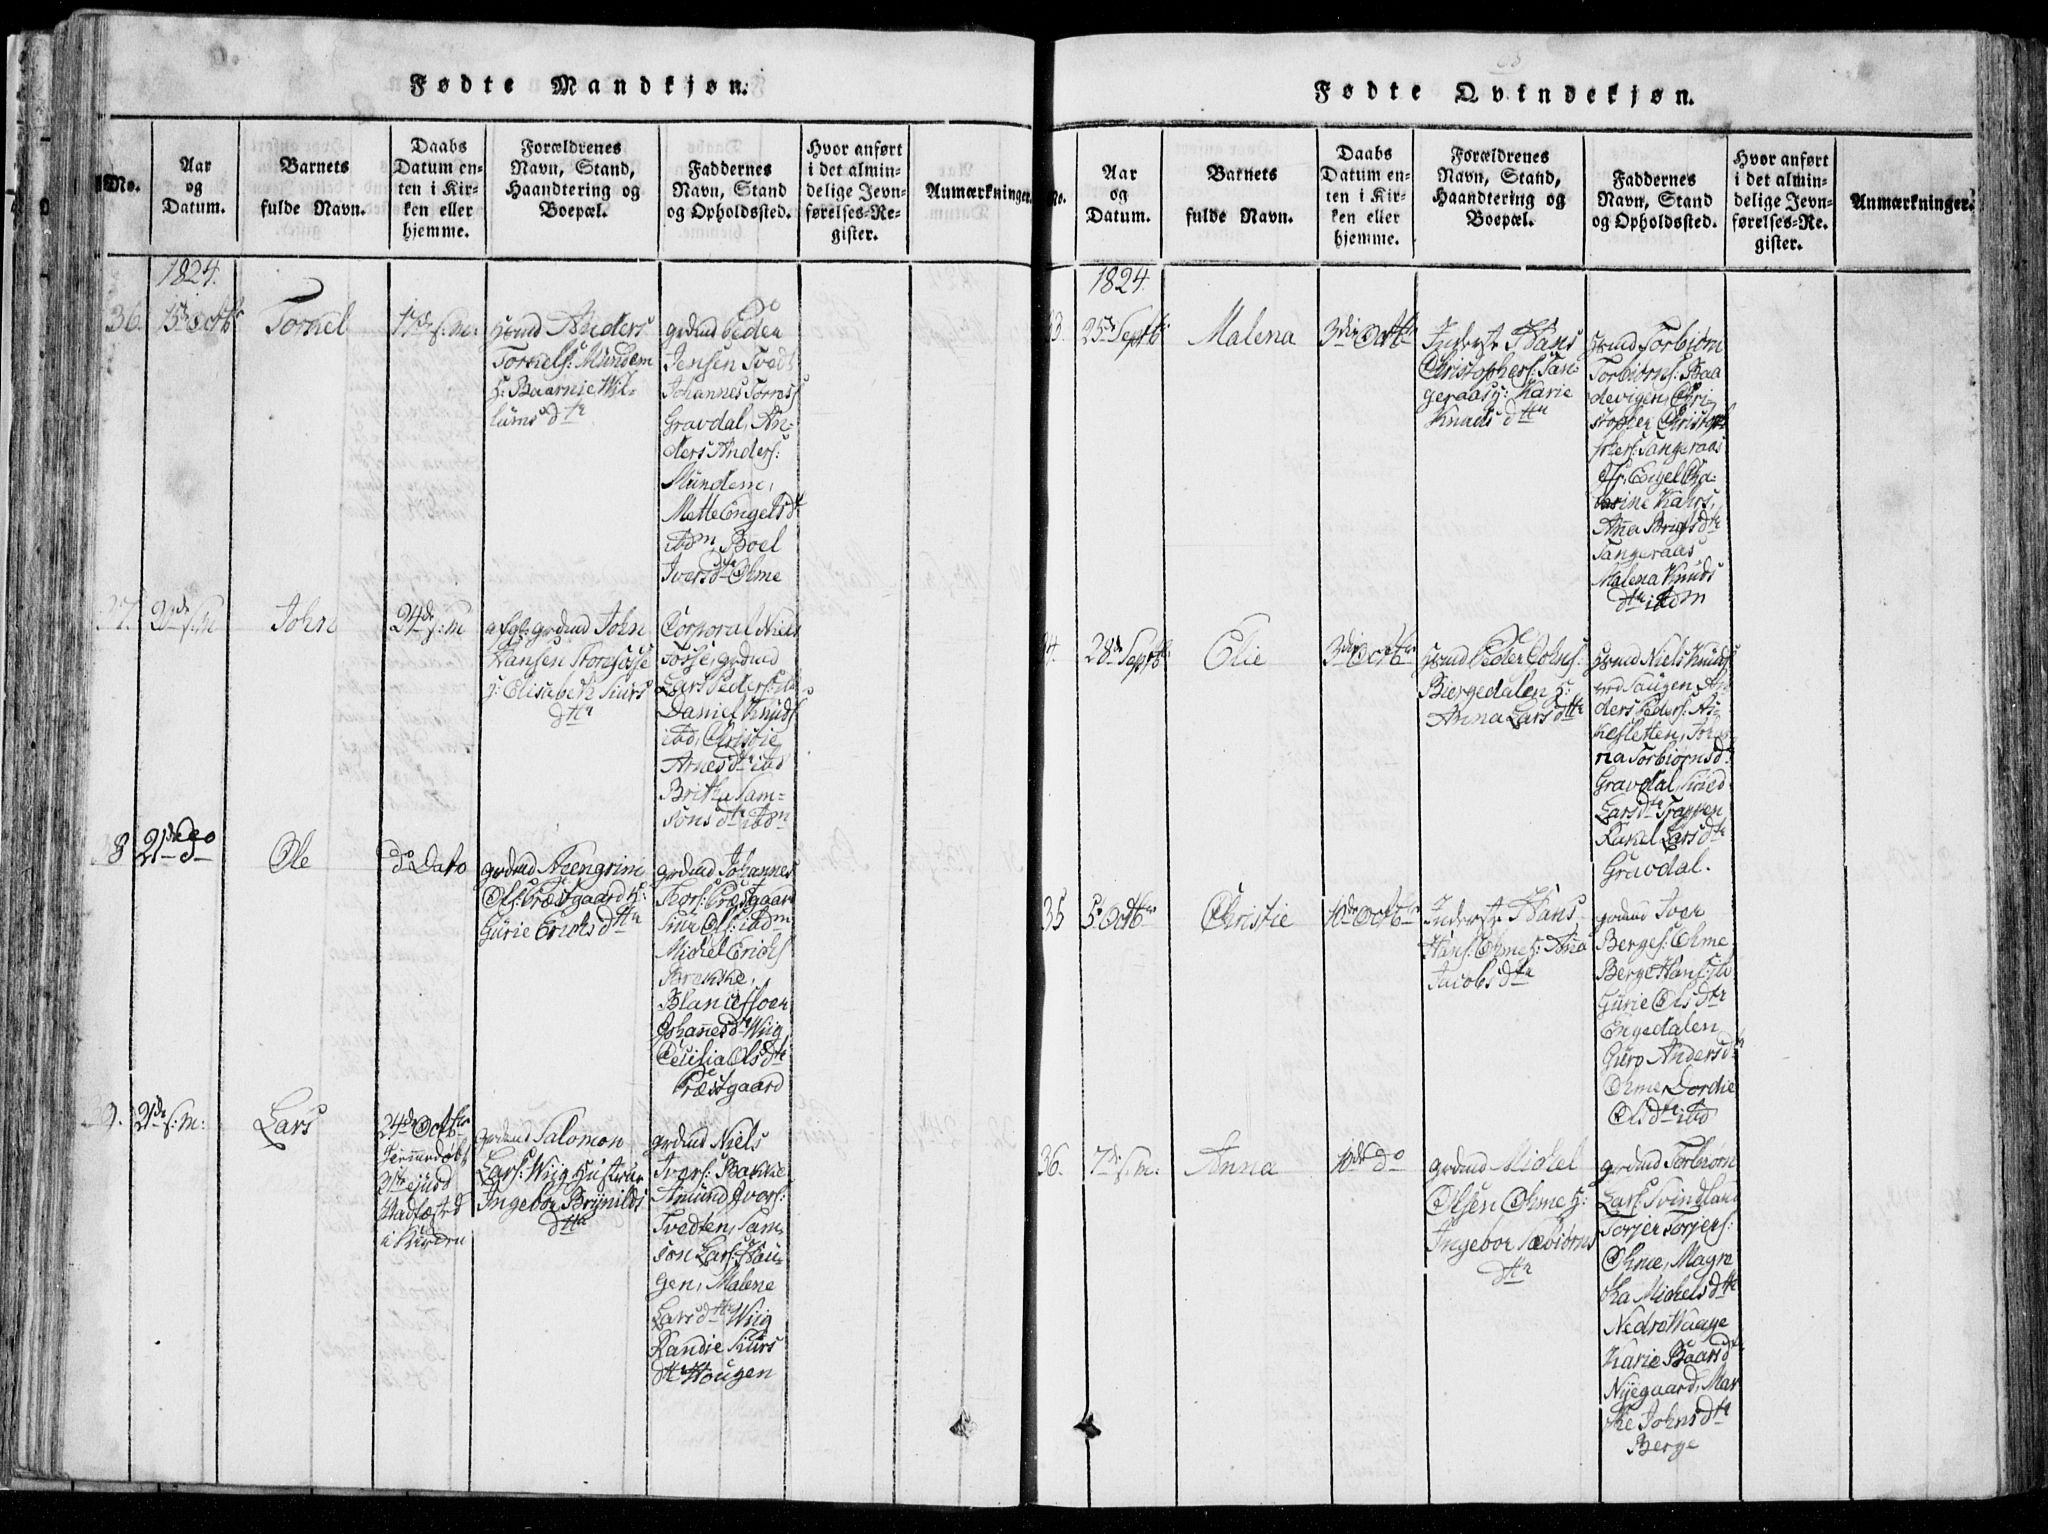 Fødte Mandkjøn.
No.
Aar
og
Datum.
Barnets
fulde Navn.
Daabs
Datum en-
ten i Kir-
ken eller
hjemme.
Forældrenes
Navn, Stand,
Haandtering og
Boepæl.
Faddernes
Navn, Stand
og Opholdssted.
Hvor anført
i det almin-
delige Jevn-
førelses-Re-
gister.
Anmærkninger.
1824.
36.
15de Octbr
Torkel
17de s: m:
Anders
Torkels: Mundem
lumsdtr
grdmd Peder
Jensen Tvedt
Johannes
Gravdal, An-
ders Anders:
Mundem,
Mette Engelsdtr
ibdm, Boel
Iversdtr Ohme
37.
s: m
John
24de s: m
afg: grdmd John
Hansen
H: Elisabeth
dtr
Corporal Niels
Fosse, grdmd
Lars Peders:
Daniel Knuds:
ibd, Christie
Arnesdtr ibd
Britha Sam-
sonsdtr ibdm
8
21de do
Ole
do Dato
grdmd Steengrim
Ols: Præstgaard H:
Gurie Ericksdtr
grdmd Johannes
Præstgaard
Ols: ibdm
Mickel Ericks:
Brekke,
Johannesdtr Wiig
Cecilia Olsdtr
Præstgaard
39.
21de s: m:
Lars
24de Octbr
31te ejusd
i Kirken
grdmd Salomon
Lars: Wiig Hustrue
Ingebor Brynilds
dtr
grdmd Niels
Ivers: Bakke
Amund Ivers:
Tvedten, Sam-
son Lars: Hau-
gen, Malene
Larsdtr Wiig
Randie
dtr Hougen
Fødte Qvindekjøn.
No.
Aar
og
Datum.
Barnets
fulde Navn.
Daabs
Datum en-
ten i Kir-
ken eller
hjemme.
Forældrenes
Navn, Stand,
Haandtering og
Boepæl.
Faddernes
Navn, Stand
og Opholdssted.
Hvor anført
i det almin-
delige Jevn-
førelses-Re-
gister.
Anmærkninger.
1824.
33.
25de Septbr
Malena
3die Octbr
Inderst Hans
Christophers: Tan-
geraas H: Karie
Knudsdtr
Torbiørn
Torbiørns: Baa
devigen, Chri-
stopher Christoph
hers: Tangeraas
Jfr: Engel Cha-
trine Kahrs,
Anna Brigtsdtr
Tangeraas
Malena Knuds
dtr ibdm
34.
28de Septbr
Elie
3die Octbr
Peder Johns:
Biergedalen H:
Anna Larsdtr
Niels Knuds:
Haugen, An
ders Peders:
Torbiørnsdtr
Gravdal,
Larsdtr Trappen
Rakel Larsdtr
Gravdal.
35
5te Octbr
Christie
10de Octbr
Inderst Hans
Hans: Ohme H: Anna
Jacobsdtr
grdmd Iver
Berges: Ohme
Berge Hans: ib
Gurie Olsdtr
Engedalen
Guro Andersdtr
Ohme, Dordie
Olsdtr ibd
36.
7de s: m:
Anna
10de do
grdmd Mickel
Olsen Ohme H:
Ingebor Sæbiørns
dtr
grdmd Torbiørn
Lars: Svindland
Torjer Torjers:
Ohme, Magre
tha Mickelsdtr
Nedre Waage
Karie Baarsdtr
Nyegaard, Mar
the Johnsdtr
Berge